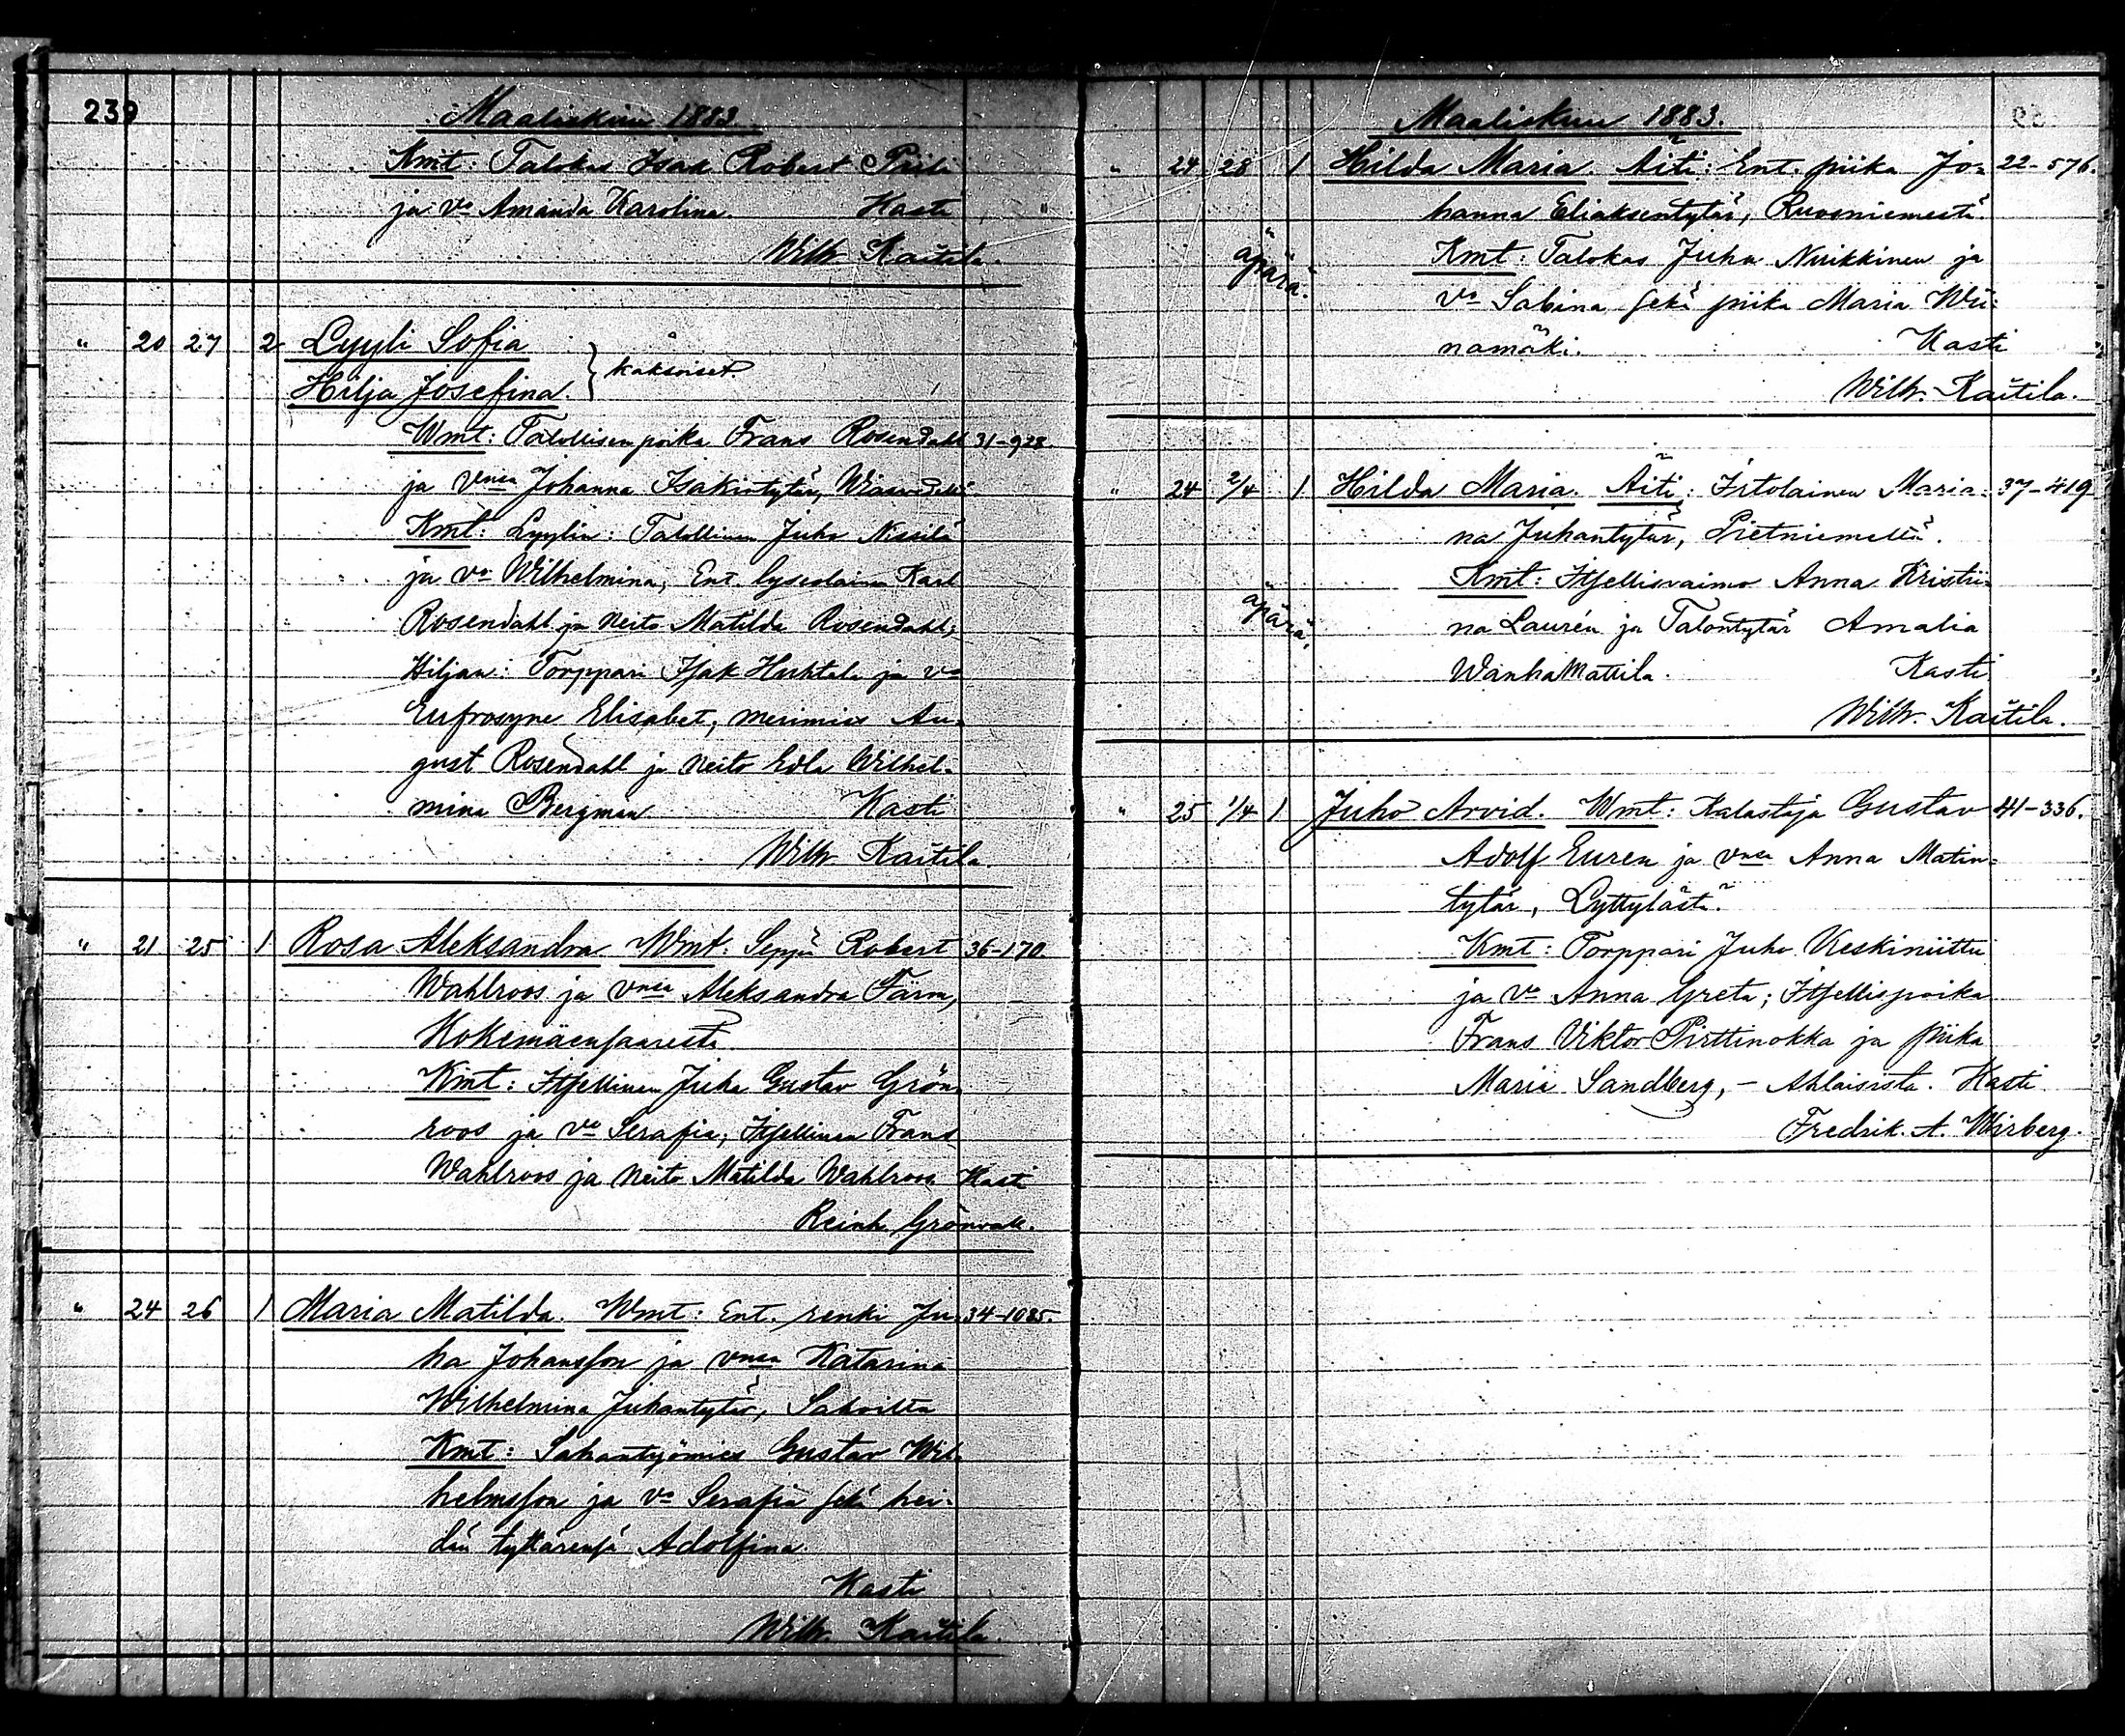 239
Maaliskuu 1883.
Kmt: Talokas Isak Robert
ja vo Amanda Karolina. Kasti
Wilh. Kaitila.
" 20 27 2 Lyyli Sofia
Hilja Josefina. } kaksoiset.
Wmt: Talollisen poika Frans Rosendahl 31-928.
ja vnsa Johanna Isakintytär,
Kmt: Lyylin: Talollinen Juho Nissilä
ja vo Wilhelmina, Ent. lyseolainen Karl
Rosendahl ja Neito Matilda Rosendahl;
Hiljan: Torppari Isak Huhtala ja vo
Eufrosyne Elisabet, merimies Au-
gust Rosendahl ja Neito Edla Wilhel-
mina Bergman Kasti
Wilh. Kaitila.
" 21 25 1 Rosa Aleksandra. Wmt: Seppä Robert 36-170.
Wahlroos ja vnsa Aleksandra Färm,
Kokemäensaaresta
Kmt: Itsellinen Juha Gustav Grön-
roos ja vo Serafia; Itsellinen Frans
Wahlroos ja Neito Matilda Wahlroos Kasti
Reinh. Grönvall.
" 24 26 1 Maria Matilda. Wmt: Ent. renki Ju- 34-1085.
ha Johansson ja vnsa Katarina
Wilhelmina Juhantytär, Sahoilta
Kmt: Sahantyömies Gustav Wil-
helmsson ja vo Serafia sekä hei-
dän tyttärensä Adolfina.
Kasti
Wilh. Kaitila.
Maaliskuu 1883.
" 24 28 1 Hilda Maria. Äiti: Ent. piika Jo- 22-576.
hanna Eliaksentytär, Ruosniemestä.
Kmt: Talokas Juha Nuikkinen ja
äpärä.
vo Sabina sekä piika Maria Wii-
namäki. Kasti
Wilh. Kaitila.
" 24 2/4 1 Hilda Maria. Äiti: Irtolainen Maria- 37-419
na Juhantytär, Pietniemeltä.
Kmt: Itsellisvaimo Anna Kristii-
äpärä.
na Laurén ja Talontytär Amalia
Wanhamattila. Kasti
Wilh. Kaitila.
" 25 1/4 1 Juho Arvid. Wmt: Kalastaja Gustav 41-336.
Adolf Euren ja vnsa Anna Matin-
tytär, Lyttylästä.
Kmt: Torppari Juho Keskiniittu
ja vo Anna Greta; Itsellispoika
Frans Viktor Pirttinokka ja piika
Maria Sandberg, - Ahlaisista. Kasti
Fredrik. A. Wirberg.